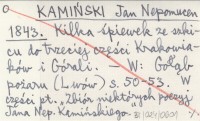 KAMIŃSKI Jan Nepomucen
1843. Kilka śpiewek ze szki-
cu do Trzeciej części Krakowia-
ków i Górali. — W: Gołąb
pożaru (Lwów) s. 50-53 W
części pt. „Zbiór niektórych poezyj
Jana Nep. Kamińskiego."